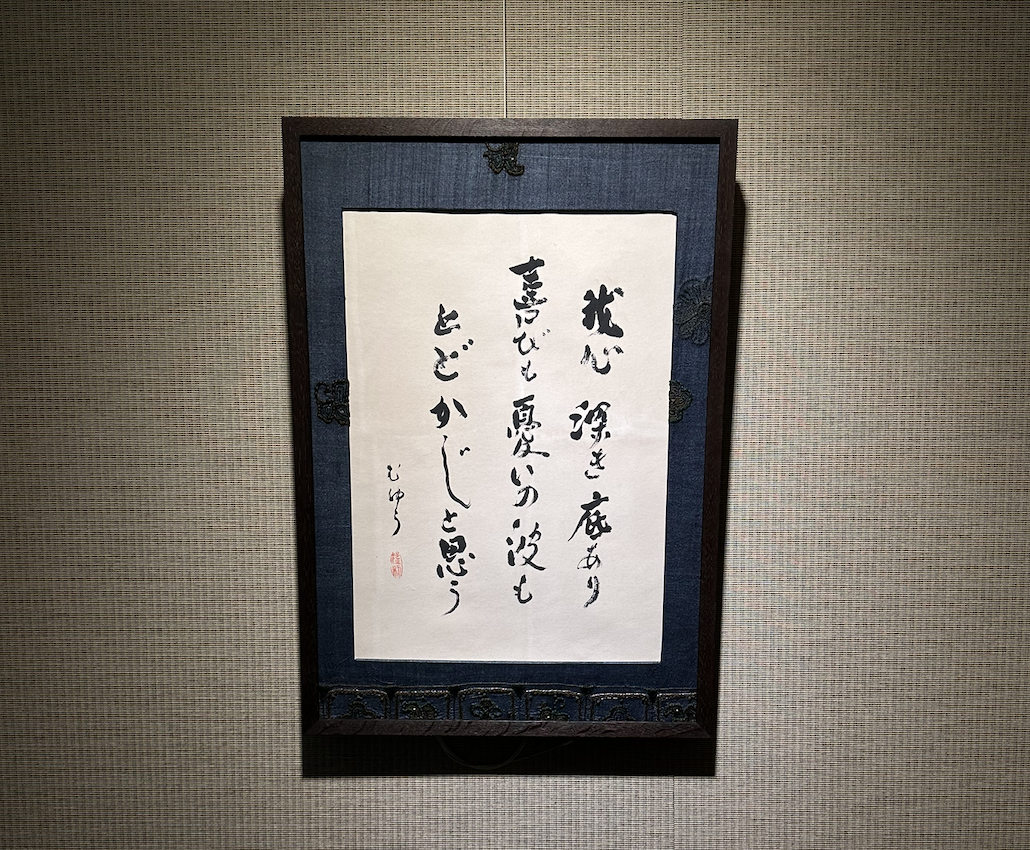 我心 深き底あり
喜びも 憂いの波も
とどかじと思う
むゆう